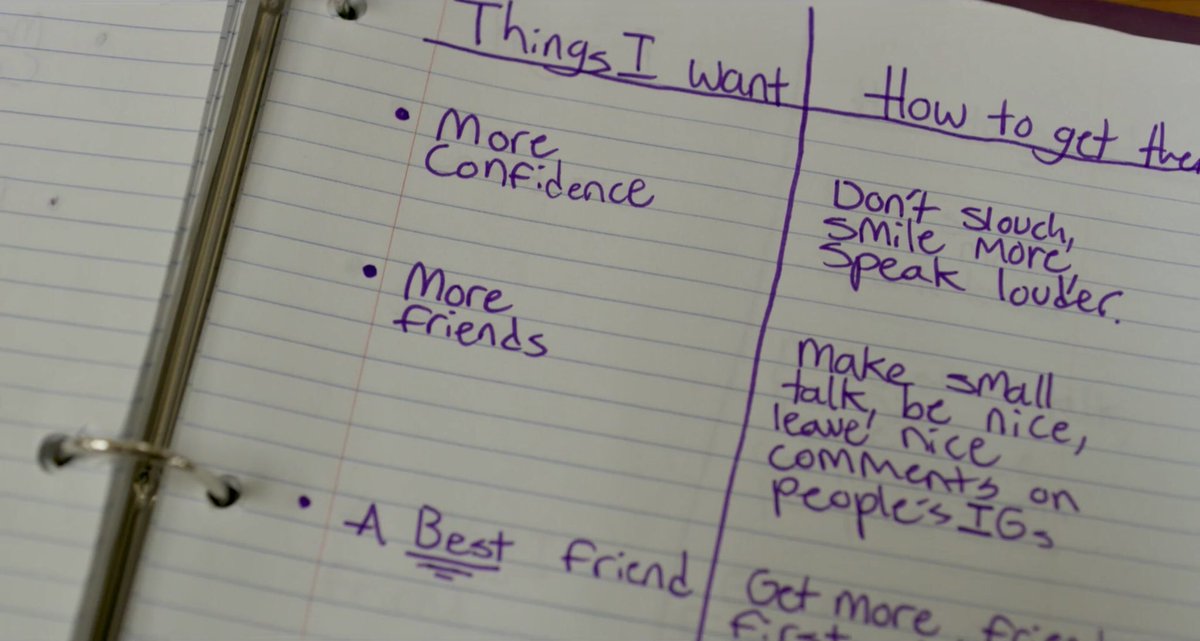 Things I want
How to get
• More
Confidence
Don't slouch,
smile more,
speak louder.
• More
friends
Make small
talk, be nice,
leave nice
comments on
people's IGs
• A Best friend
Get more
first